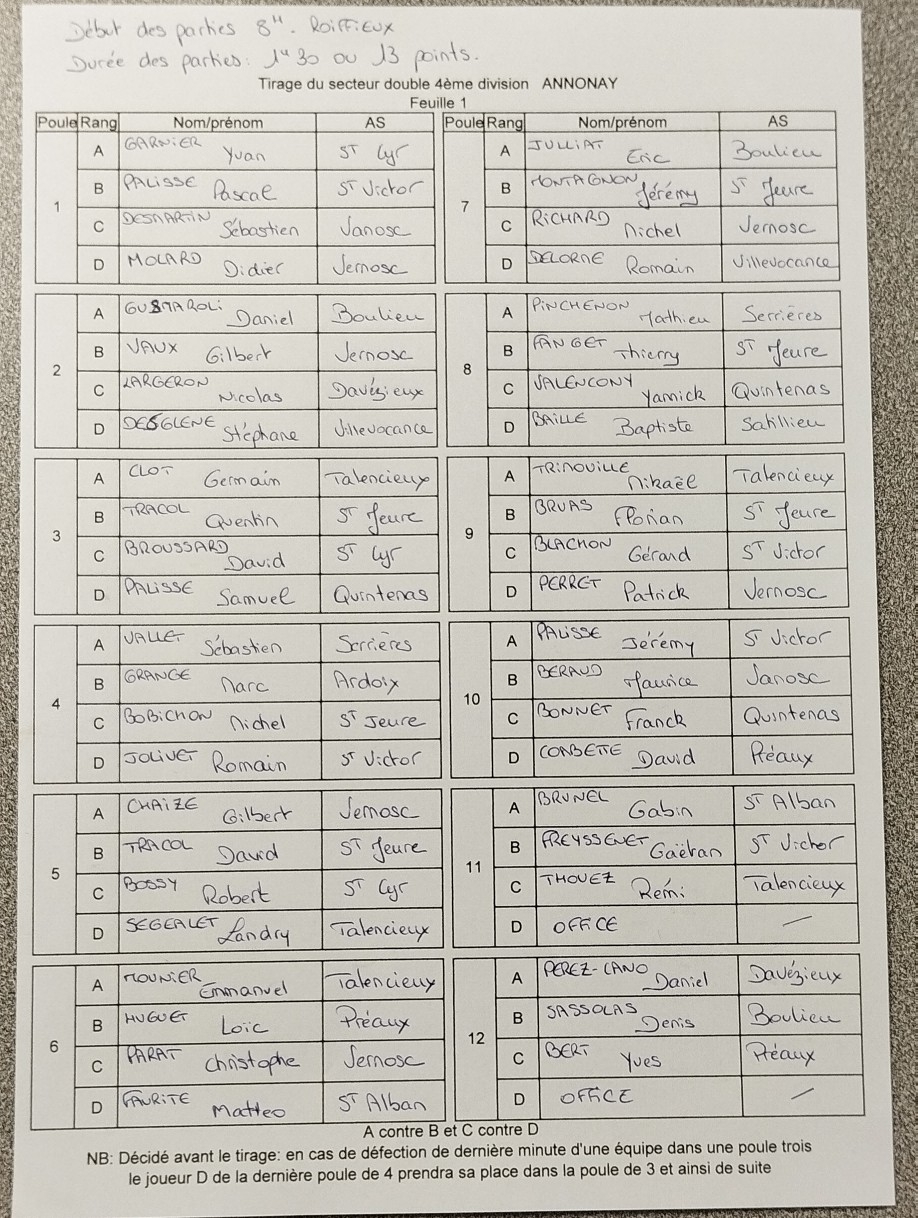 Début des parties 8H. Roiffieux
Durée des parties: 1H30 ou 13 points.
Tirage du secteur double 4ème division ANNONAY
Feuille 1
Poule Rang Nom/prénom AS
1
A GARNIER Yvan ST Cyr
B PALISSE Pascal ST Victor
C DESMARTIN Sébastien Vanosc
D MOLARD Didier Vernosc
2
A GUSTAROLI Daniel Boulieu
B VAUX Gilbert Vernosc
C LARGERON Nicolas Davézieux
D DESGLENE Stéphane Villevocance
3
A CLOT Germain Talencieux
B TRACOL Quentin ST Jeure
C BROUSSARD David ST Cyr
D PALISSE Samuel Quintenas
4
A VALLET Sébastien Serrières
B GRANGE Marc Ardoix
C BOBICHON Michel ST Jeure
D JOLIVET Romain ST Victor
5
A CHAIZE Gilbert Vernosc
B TRACOL David ST Jeure
C BOSSY Robert ST Cyr
D SEGEALET Landry Talencieux
6
A MOUNIER Emmanuel Talencieux
B HUGUET Loïc Préaux
C PARAT Christophe Vernosc
D FAURITE Matteo ST Alban
Poule Rang Nom/prénom AS
7
A JULLIAT Eric Boulieu
B MONTAGNON Jérémy ST Jeure
C RICHARD Michel Vernosc
D DELORME Romain Villevocance
8
A PINCHENON Mathieu Serrières
B FANGET Thierry ST Jeure
C VALENCONY Yannick Quintenas
D BAILLE Baptiste Satillieu
9
A TRINOUILLE Mikaël Talencieux
B BRUAS Florian ST Jeure
C BLACHON Gérard ST Victor
D PERRET Patrick Vernosc
10
A PALISSE Jérémy ST Victor
B BERAUD Maurice Vanosc
C BONNET Franck Quintenas
D COMBETTE David Préaux
11
A BRUNEL Gabin ST Alban
B FREYSSENET Gaëtan ST Victor
C THOUEZ Rémi Talencieux
D OFFICE —
12
A PEREZ-CANO Daniel Davézieux
B SASSOLAS Denis Boulieu
C BERT Yves Préaux
D OFFICE —
A contre B et C contre D
NB: Décidé avant le tirage: en cas de défection de dernière minute d'une équipe dans une poule trois
le joueur D de la dernière poule de 4 prendra sa place dans la poule de 3 et ainsi de suite